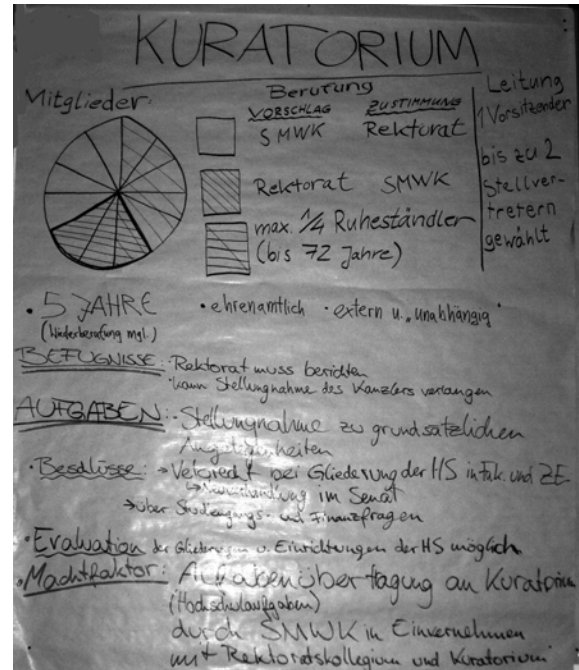 KURATORIUM
Mitglieder:
Berufung
VORSCHLAG ZUSTIMMUNG
SMWK Rektorat
Rektorat SMWK
max. 1/4 Ruheständler
(bis 72 Jahre)
Leitung
1 Vorsitzender
bis zu 2
Stellver-
tretern
gewählt
• 5 JAHRE • ehrenamtlich • extern u. "unabhängig"
(Wiederberufung mgl.)
BEFUGNISSE: • Rektorat muss berichten
• kann Stellungnahme des Kanzlers verlangen
AUFGABEN: • Stellungnahme zu grundsätzlichen
Angelegenheiten
• Beschlüsse: → Vetorecht bei Gliederung der HS in Fak. und ZE
↳ Neuverhandlung im Senat
→ über Studiengangs- und Finanzfragen
• Evaluation der Gliederungen u. Einrichtungen der HS möglich
• Machtfaktor: Aufgabenübertragung an Kuratorium
(Hochschulaufgaben)
durch SMWK in Einvernehmen
mit Rektoratskollegium und Kuratorium